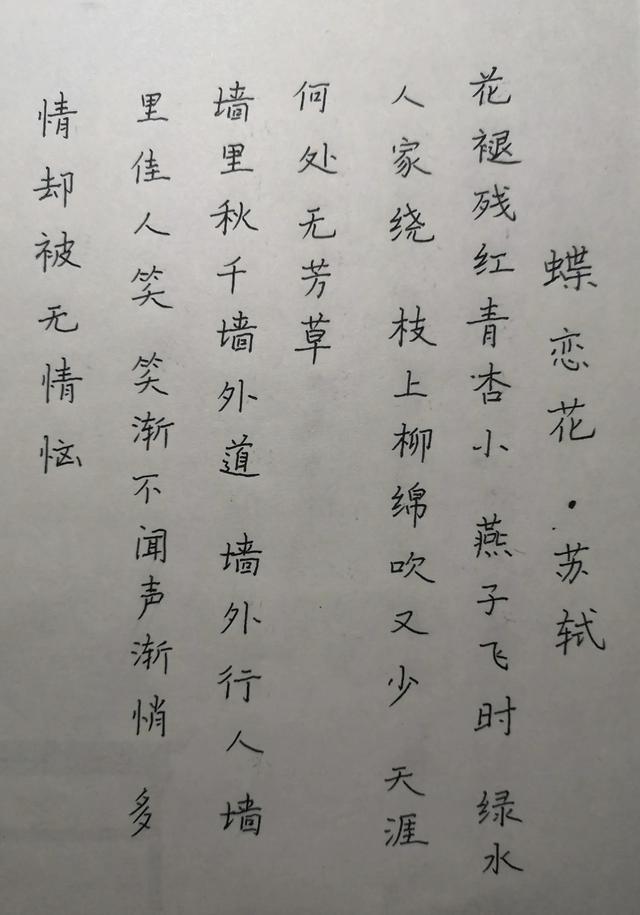 蝶恋花·苏轼
花褪残红青杏小 燕子飞时 绿水
人家绕 枝上柳绵吹又少 天涯
何处无芳草
墙里秋千墙外道 墙外行人墙
里佳人笑 笑渐不闻声渐悄 多
情却被无情恼